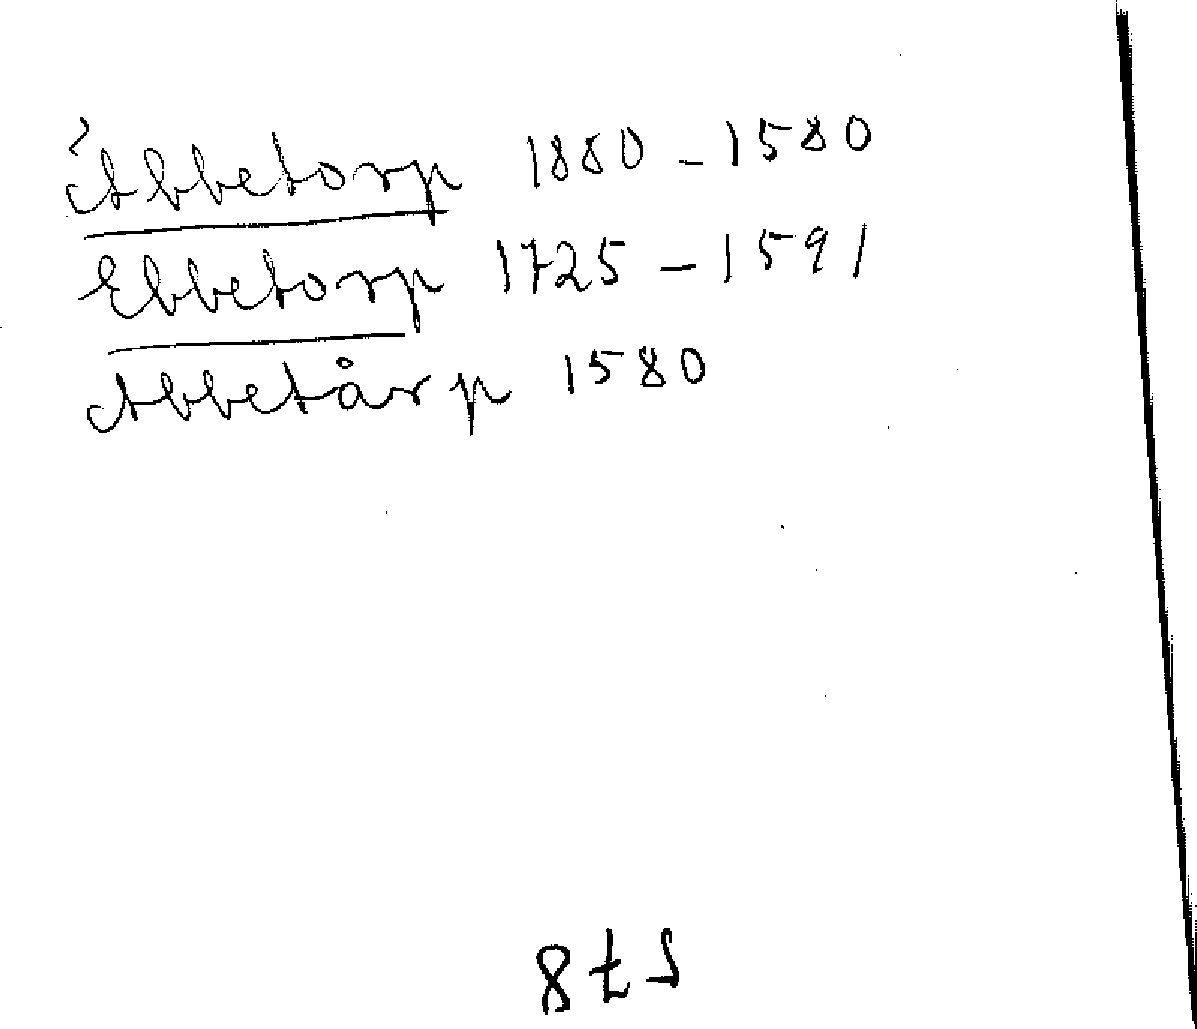 ? Abbetorp 1880 – 1580
Ebbetorp 1725 – 1591
Abbetårp 1580
578